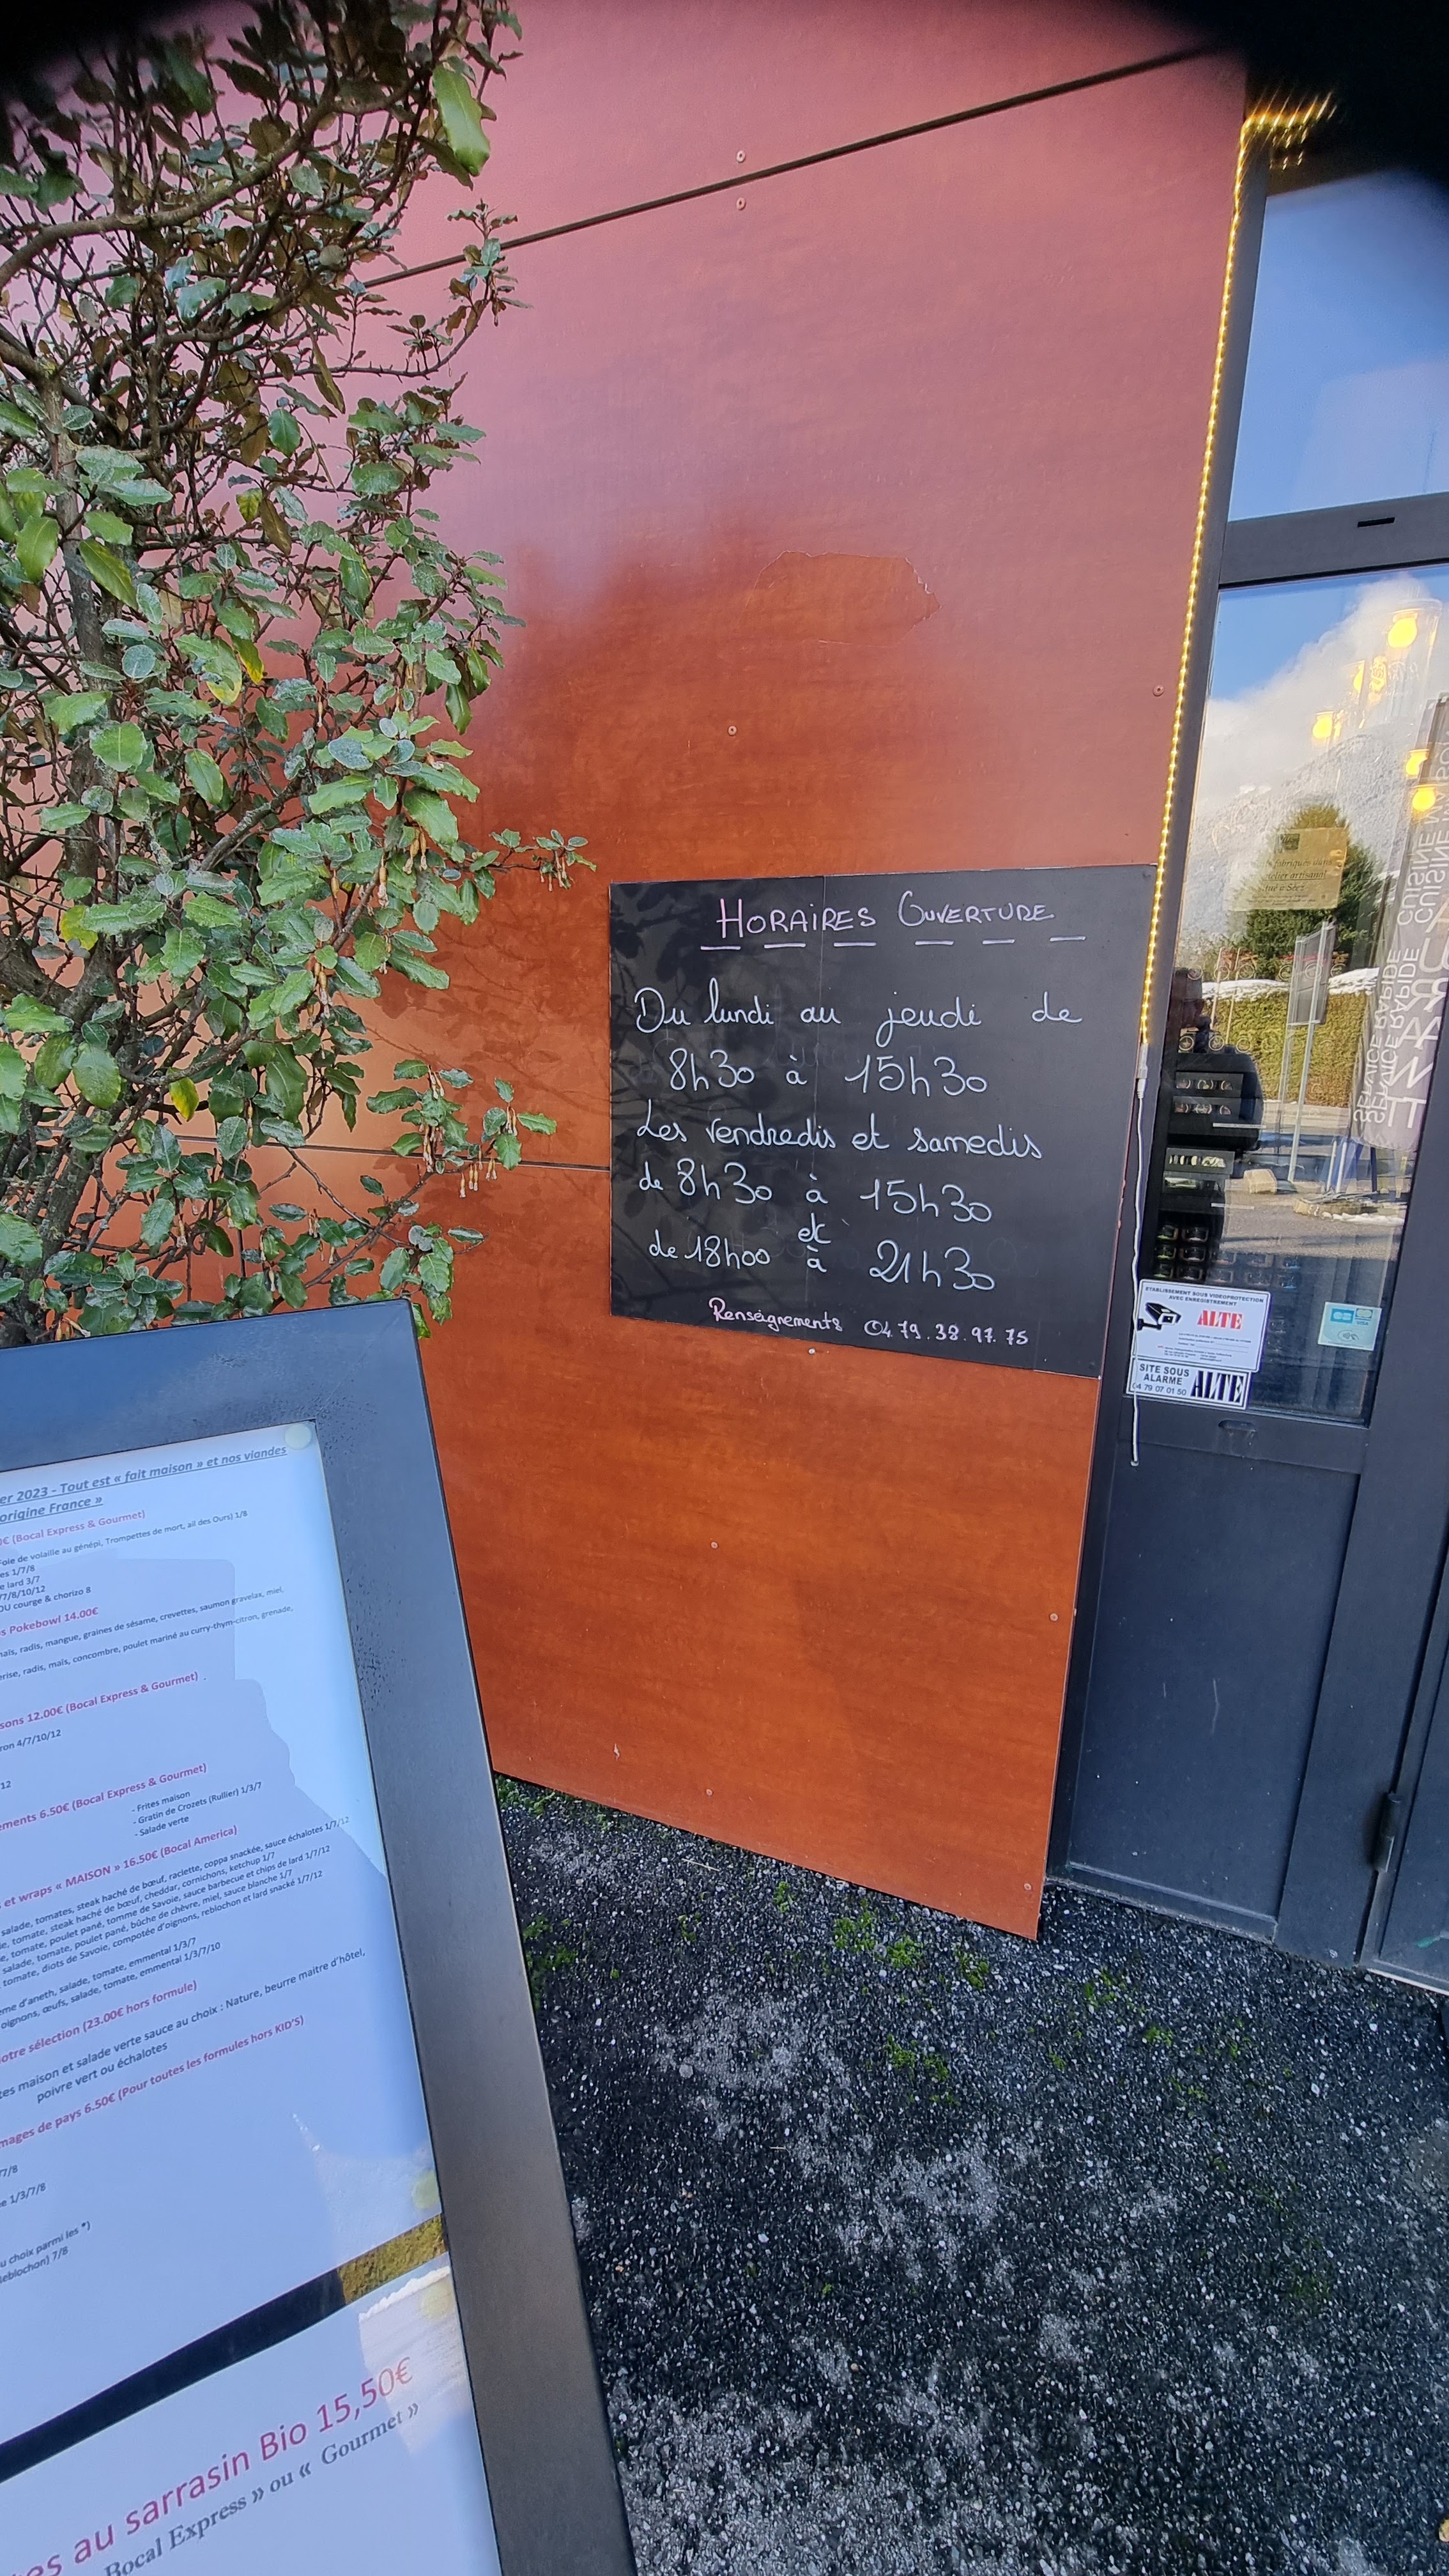 HORAIRES OUVERTURE
Du lundi au jeudi de
8h30 à 15h30
Les vendredis et samedis
de 8h30 à 15h30
et
de 18h00 à 21h30
Renseignements 04.79.38.97.75
ETABLISSEMENT SOUS VIDEOPROTECTION
AVEC ENREGISTREMENT
ALTE
SITE SOUS
ALARME
04 79 07 01 50
ALTE
VISA
SERVICE RAPIDE
er 2023 - Tout est « fait maison » et nos viandes
origine France »
€ (Bocal Express & Gourmet)
Foie de volaille au génépi, Trompettes de mort, ail des Ours) 1/8
es 1/7/8
e lard 3/7
7/8/10/12
OU courge & chorizo 8
s Pokebowl 14.00€
maïs, radis, mangue, graines de sésame, crevettes, saumon gravelax, miel,
erise, radis, maïs, concombre, poulet mariné au curry-thym-citron, grenade,
sons 12.00€ (Bocal Express & Gourmet)
ron 4/7/10/12
12
ements 6.50€ (Bocal Express & Gourmet)
- Frites maison
- Gratin de Crozets (Rullier) 1/3/7
- Salade verte
s et wraps « MAISON » 16.50€ (Bocal America)
salade, tomates, steak haché de bœuf, raclette, coppa snackée, sauce échalotes 1/7/12
e, tomate, steak haché de bœuf, cheddar, cornichons, ketchup 1/7
e, tomate, poulet pané, tomme de Savoie, sauce barbecue et chips de lard 1/7/12
salade, tomate, poulet pané, bûche de chèvre, miel, sauce blanche 1/7
tomate, diots de Savoie, compotée d'oignons, reblochon et lard snacké 1/7/12
ème d'aneth, salade, tomate, emmental 1/3/7
oignons, œufs, salade, tomate, emmental 1/3/7/10
otre sélection (23.00€ hors formule)
tes maison et salade verte sauce au choix : Nature, beurre maitre d'hôtel,
poivre vert ou échalotes
mages de pays 6.50€ (Pour toutes les formules hors KID'S)
7/8
e 1/3/7/8
u choix parmi les *)
Reblochon) 7/8
es au sarrasin Bio 15,50€
Bocal Express » ou « Gourmet »